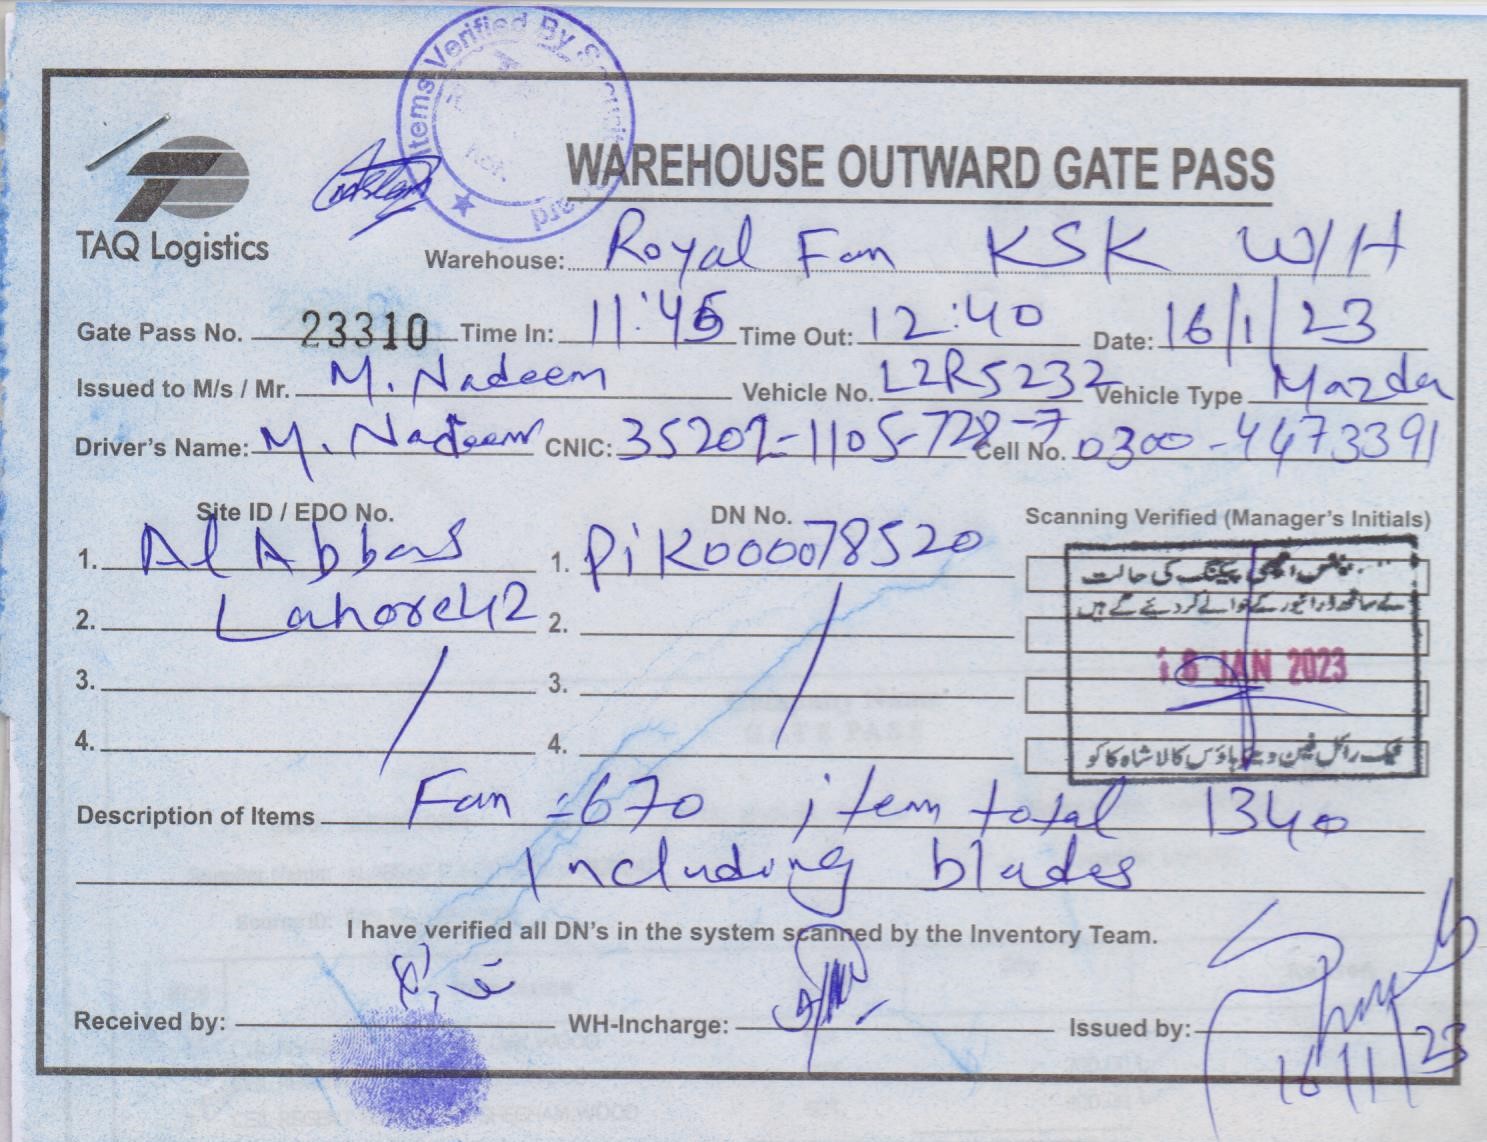 Items Verified By Security Guard
WAREHOUSE OUTWARD GATE PASS
TAQ Logistics
Warehouse: Royal Fan KSK W/H
Gate Pass No. 23310 Time In: 11:45 Time Out: 12:40 Date: 16/1/23
Issued to M/s / Mr. M. Nadeem Vehicle No. LZR5232 Vehicle Type Mazda
Driver's Name: M. Nadeem CNIC: 35202-1105-728-7 Cell No. 0300-4473391
Site ID / EDO No. DN No. Scanning Verified (Manager's Initials)
1. Al Abbas 1. PiK000078520
2. Lahore42 2.
3. 3.
4. 4.
اچھی پیکنگ کی حالت
کے ساتھ ڈرائیور کے حوالے کر دیئے گئے ہیں
16 JAN 2023
ٹیک رائل فین ویئر ہاؤس کالا شاہ کاکو
Description of Items Fan =670 item total 1340
Including blades
I have verified all DN's in the system scanned by the Inventory Team.
Received by: WH-Incharge: Issued by:
16/1/23